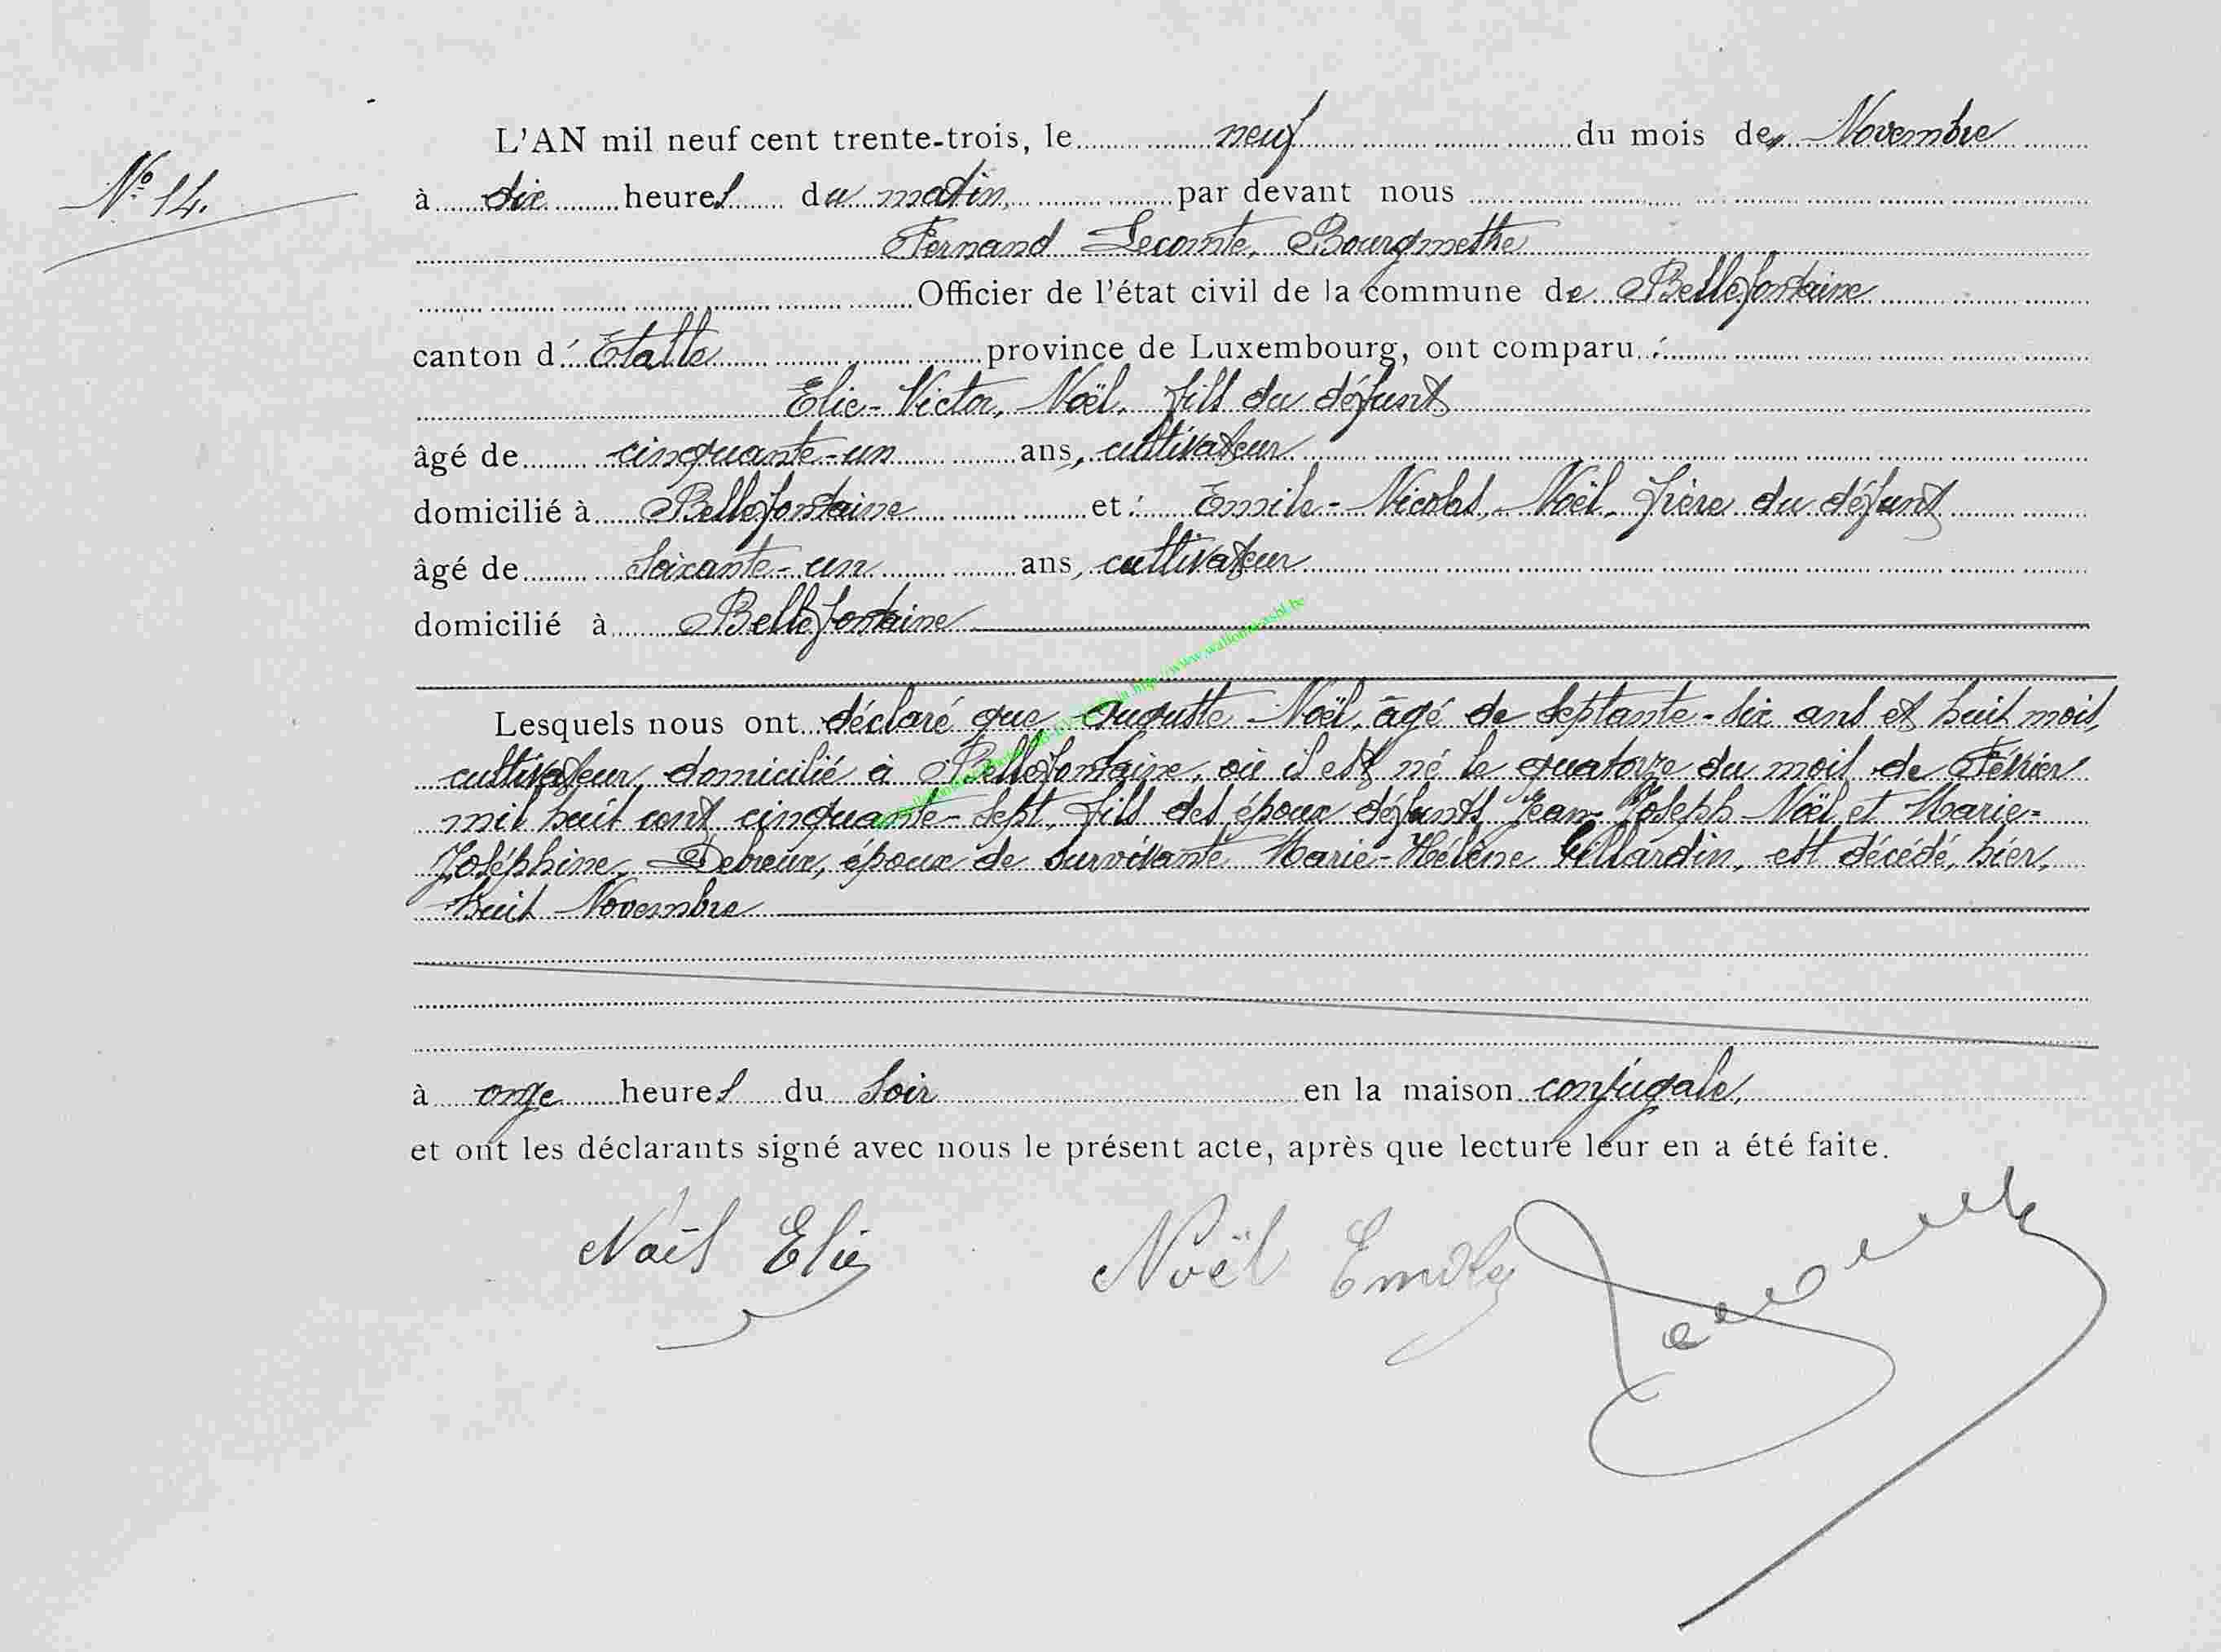 N° 14.
L'AN mil neuf cent trente-trois, le neuf du mois de Novembre
à dix heures du matin, par devant nous
Fernand Lecomte, Bourgmestre
Officier de l'état civil de la commune de Bellefontaine
canton d'Etalle province de Luxembourg, ont comparu :
Elie-Victor, Noël, fils du défunt
âgé de cinquante-un ans, cultivateur
domicilié à Bellefontaine et : Emile-Nicolas, Noël, frère du défunt
âgé de soixante-un ans, cultivateur
domicilié à Bellefontaine
Lesquels nous ont déclaré que Auguste Noël, âgé de septante-six ans et huit mois,
cultivateur, domicilié à Bellefontaine, où il est né le quatorze du mois de Février
mil huit cent cinquante-sept, fils des époux défunts Jean-Joseph Noël et Marie-
Joséphine, Debreux, époux de survivante Marie-Hélène Gillardin, est décédé, hier,
huit Novembre
à onze heures du soir en la maison conjugale,
et ont les déclarants signé avec nous le présent acte, après que lecture leur en a été faite.
Noël Elie Noël Emile